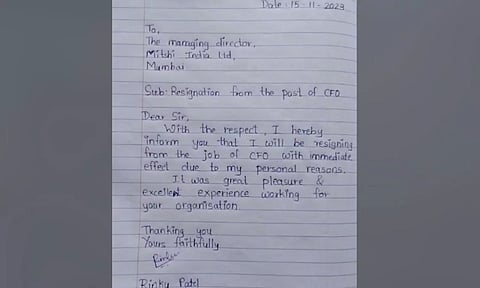 Date: 15-11-2023
To,
The managing director,
Mitshi India Ltd,
Mumbai
Sub-Resignation from the post of CFO
Dear Sir,
With the respect, I hereby
inform you that I will be resigning
from the job of CFO with immediate
effect due to my personal reasons.
It was great pleasure &
excellent experience working for
your organisation
Thanking you
Yours faithfully
Rinku
Rinky Patel